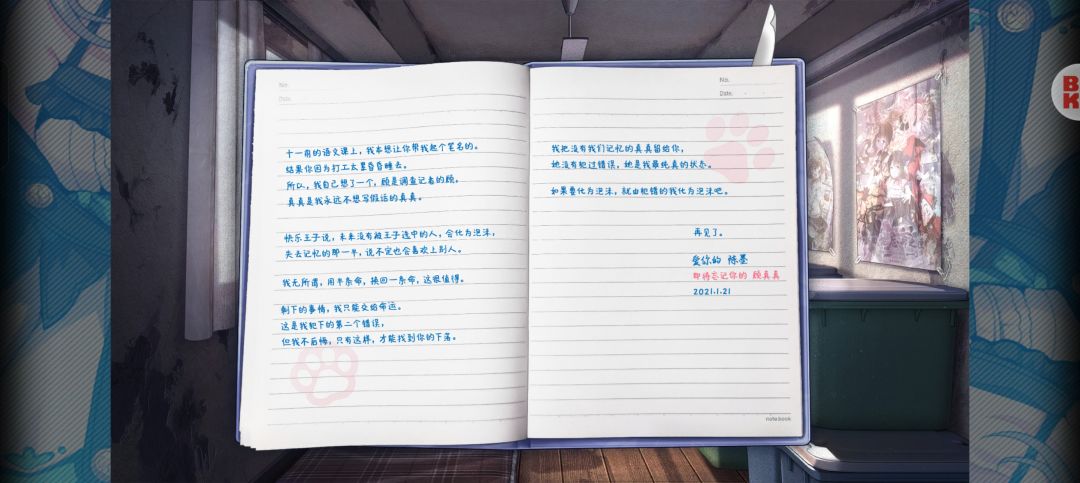 No.
Date.
十一月的语文课上，我本想让你帮我起个笔名的。
结果你因为打工太累昏昏睡去。
所以，我自己想了一个，顾是调查记者的顾。
真真是我永远不想写假话的真真。
快乐王子说，未来没有被王子选中的人，会化为泡沫，
失去记忆的那一半，说不定也会喜欢上别人。
我无所谓，用半条命，换回一条命，这很值得。
剩下的事情，我只能交给命运。
这是我犯下的第二个错误，
但我不后悔，只有这样，才能找到你的下落。
No.
Date.
我把没有我们记忆的真真留给你，
她没有犯过错误，她是我最纯真的状态。
如果要化为泡沫，就由犯错的我化为泡沫吧。
再见了。
爱你的 陈墨
即将忘记你的 顾真真
2021.1.21
notebook
B
K